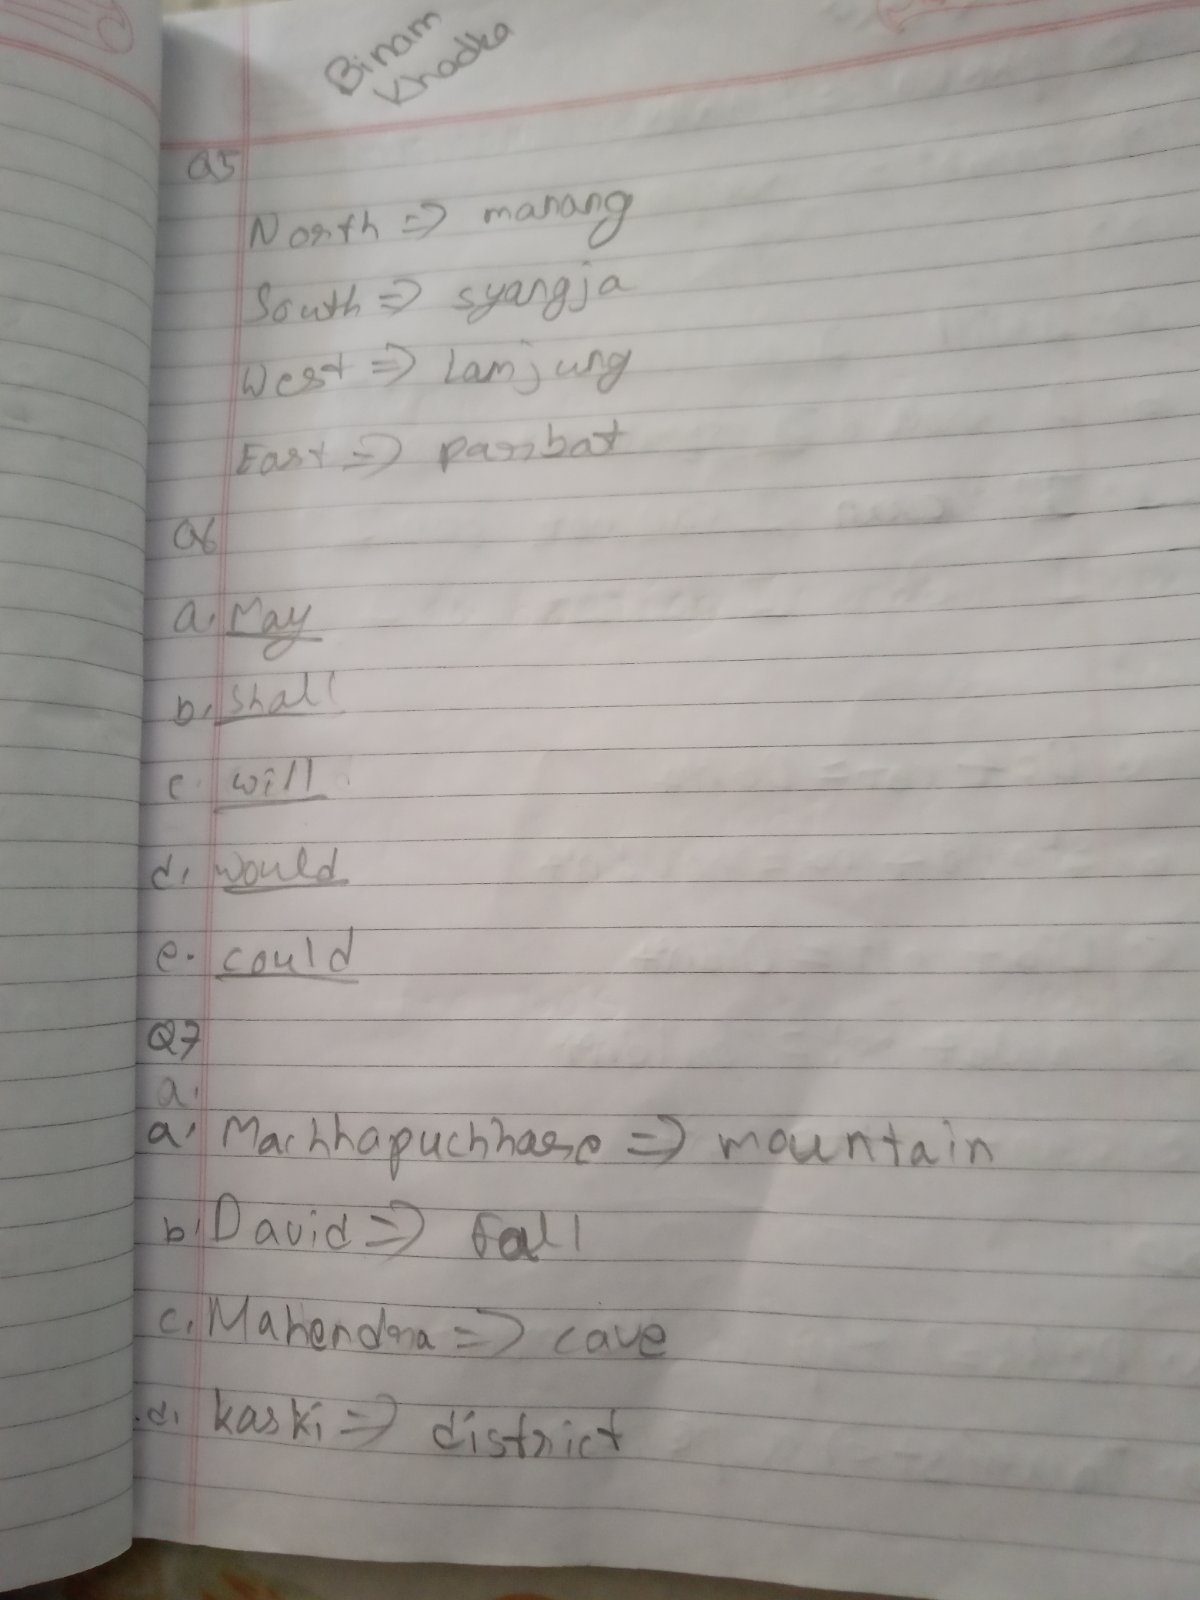 Binam
Khadka
Q5
North => manang
South => syangja
West => Lamjung
East => parbat
Q6
a. May
b. shall
c. will
d. would
e. could
Q7
a.
a. Machhapuchhare => mountain
b. David => Fall
c. Mahendra => cave
d. kaski => district